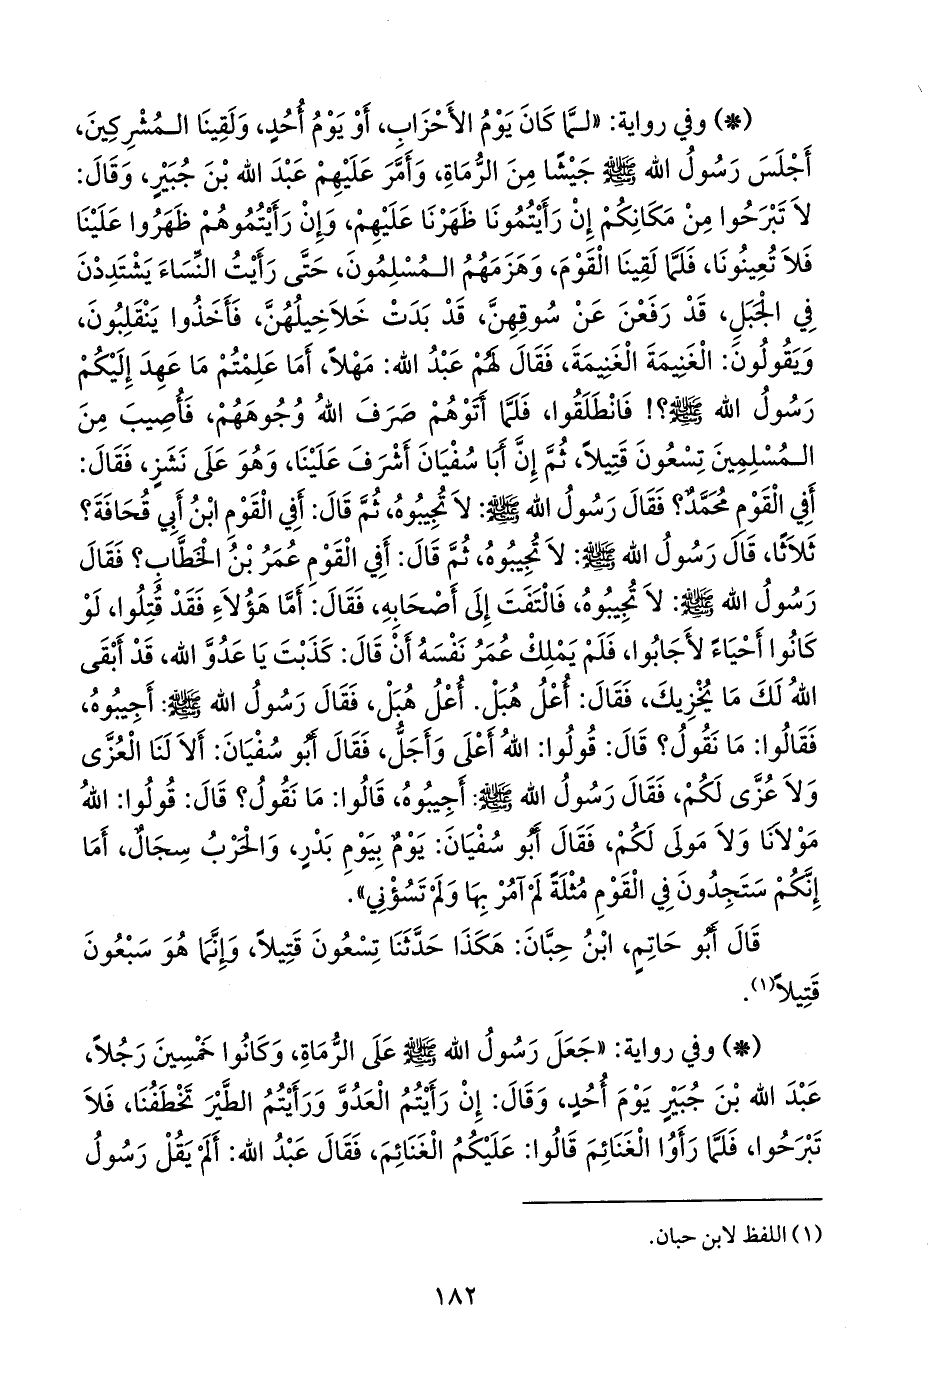 (*) وفي رواية: «لـمَّا كَانَ يَوْمُ الأَحْزَابِ، أَوْ يَوْمُ أُحُدٍ، وَلَقِينَا الـمُشْرِكِينَ،
أَجْلَسَ رَسُولُ الله ﷺ جَيْشًا مِنَ الرُّمَاةِ، وَأَمَّرَ عَلَيْهِمْ عَبْدَ الله بْنَ جُبَيْرٍ، وَقَالَ:
لاَ تَبْرَحُوا مِنْ مَكَانِكُمْ إِنْ رَأَيْتُمُونَا ظَهَرْنَا عَلَيْهِمْ، وَإِنْ رَأَيْتُمُوهُمْ ظَهَرُوا عَلَيْنَا
فَلاَ تُعِينُونَا، فَلَمَّا لَقِينَا الْقَوْمَ، وَهَزَمَهُمُ الـمُسْلِمُونَ، حَتَّى رَأَيْتُ النِّسَاءَ يَشْتَدِدْنَ
فِي الْجَبَلِ، قَدْ رَفَعْنَ عَنْ سُوقِهِنَّ، قَدْ بَدَتْ خَلاَخِيلُهُنَّ، فَأَخَذُوا يَنْقَلِبُونَ،
وَيَقُولُونَ: الْغَنِيمَةَ الْغَنِيمَةَ، فَقَالَ لَهُمْ عَبْدُ الله: مَهْلاً، أَمَا عَلِمْتُمْ مَا عَهِدَ إِلَيْكُمْ
رَسُولُ الله ﷺ؟! فَانْطَلَقُوا، فَلَمَّا أَتَوْهُمْ صَرَفَ اللهُ وُجُوهَهُمْ، فَأُصِيبَ مِنَ
الـمُسْلِمِينَ تِسْعُونَ قَتِيلاً، ثُمَّ إِنَّ أَبَا سُفْيَانَ أَشْرَفَ عَلَيْنَا، وَهُوَ عَلَى نَشَزٍ، فَقَالَ:
أَفِي الْقَوْمِ مُحَمَّدٌ؟ فَقَالَ رَسُولُ الله ﷺ: لاَ تُجِيبُوهُ، ثُمَّ قَالَ: أَفِي الْقَوْمِ ابْنُ أَبِي قُحَافَةَ؟
ثَلاَثًا، قَالَ رَسُولُ الله ﷺ: لاَ تُجِيبُوهُ، ثُمَّ قَالَ: أَفِي الْقَوْمِ عُمَرُ بْنُ الْخَطَّابِ؟ فَقَالَ
رَسُولُ الله ﷺ: لاَ تُجِيبُوهُ، فَالْتَفَتَ إِلَى أَصْحَابِهِ، فَقَالَ: أَمَّا هَؤُلاَءِ فَقَدْ قُتِلُوا، لَوْ
كَانُوا أَحْيَاءً لأَجَابُوا، فَلَمْ يَمْلِكْ عُمَرُ نَفْسَهُ أَنْ قَالَ: كَذَبْتَ يَا عَدُوَّ الله، قَدْ أَبْقَى
اللهُ لَكَ مَا يُخْزِيكَ، فَقَالَ: أُعْلُ هُبَلْ. أُعْلُ هُبَلْ، فَقَالَ رَسُولُ الله ﷺ: أَجِيبُوهُ،
فَقَالُوا: مَا نَقُولُ؟ قَالَ: قُولُوا: اللهُ أَعْلَى وَأَجَلُّ، فَقَالَ أَبُو سُفْيَانَ: أَلاَ لَنَا الْعُزَّى
وَلاَ عُزَّى لَكُمْ، فَقَالَ رَسُولُ الله ﷺ: أَجِيبُوهُ، قَالُوا: مَا نَقُولُ؟ قَالَ: قُولُوا: اللهُ
مَوْلاَنَا وَلاَ مَولَى لَكُمْ، فَقَالَ أَبُو سُفْيَانَ: يَوْمٌ بِيَوْمِ بَدْرٍ، وَالْحَرْبُ سِجَالٌ، أَمَا
إِنَّكُمْ سَتَجِدُونَ فِي الْقَوْمِ مُثْلَةً لَمْ آمُرْ بِهَا وَلَمْ تَسُؤْنِي».
قَالَ أَبُو حَاتِمٍ، ابْنُ حِبَّانَ: هَكَذَا حَدَّثَنَا تِسْعُونَ قَتِيلاً، وَإِنَّمَا هُوَ سَبْعُونَ
قَتِيلاً(١).
(*) وفي رواية: «جَعَلَ رَسُولُ الله ﷺ عَلَى الرُّمَاةِ، وَكَانُوا خَمْسِينَ رَجُلاً،
عَبْدَ الله بْنَ جُبَيْرٍ يَوْمَ أُحُدٍ، وَقَالَ: إِنْ رَأَيْتُمُ الْعَدُوَّ وَرَأَيْتُمُ الطَّيْرَ تَخْطَفُنَا، فَلاَ
تَبْرَحُوا، فَلَمَّا رَأَوُا الْغَنَائِمَ قَالُوا: عَلَيْكُمُ الْغَنَائِمَ، فَقَالَ عَبْدُ الله: أَلَمْ يَقُلْ رَسُولُ
(١) اللفظ لابن حبان.
١٨٢